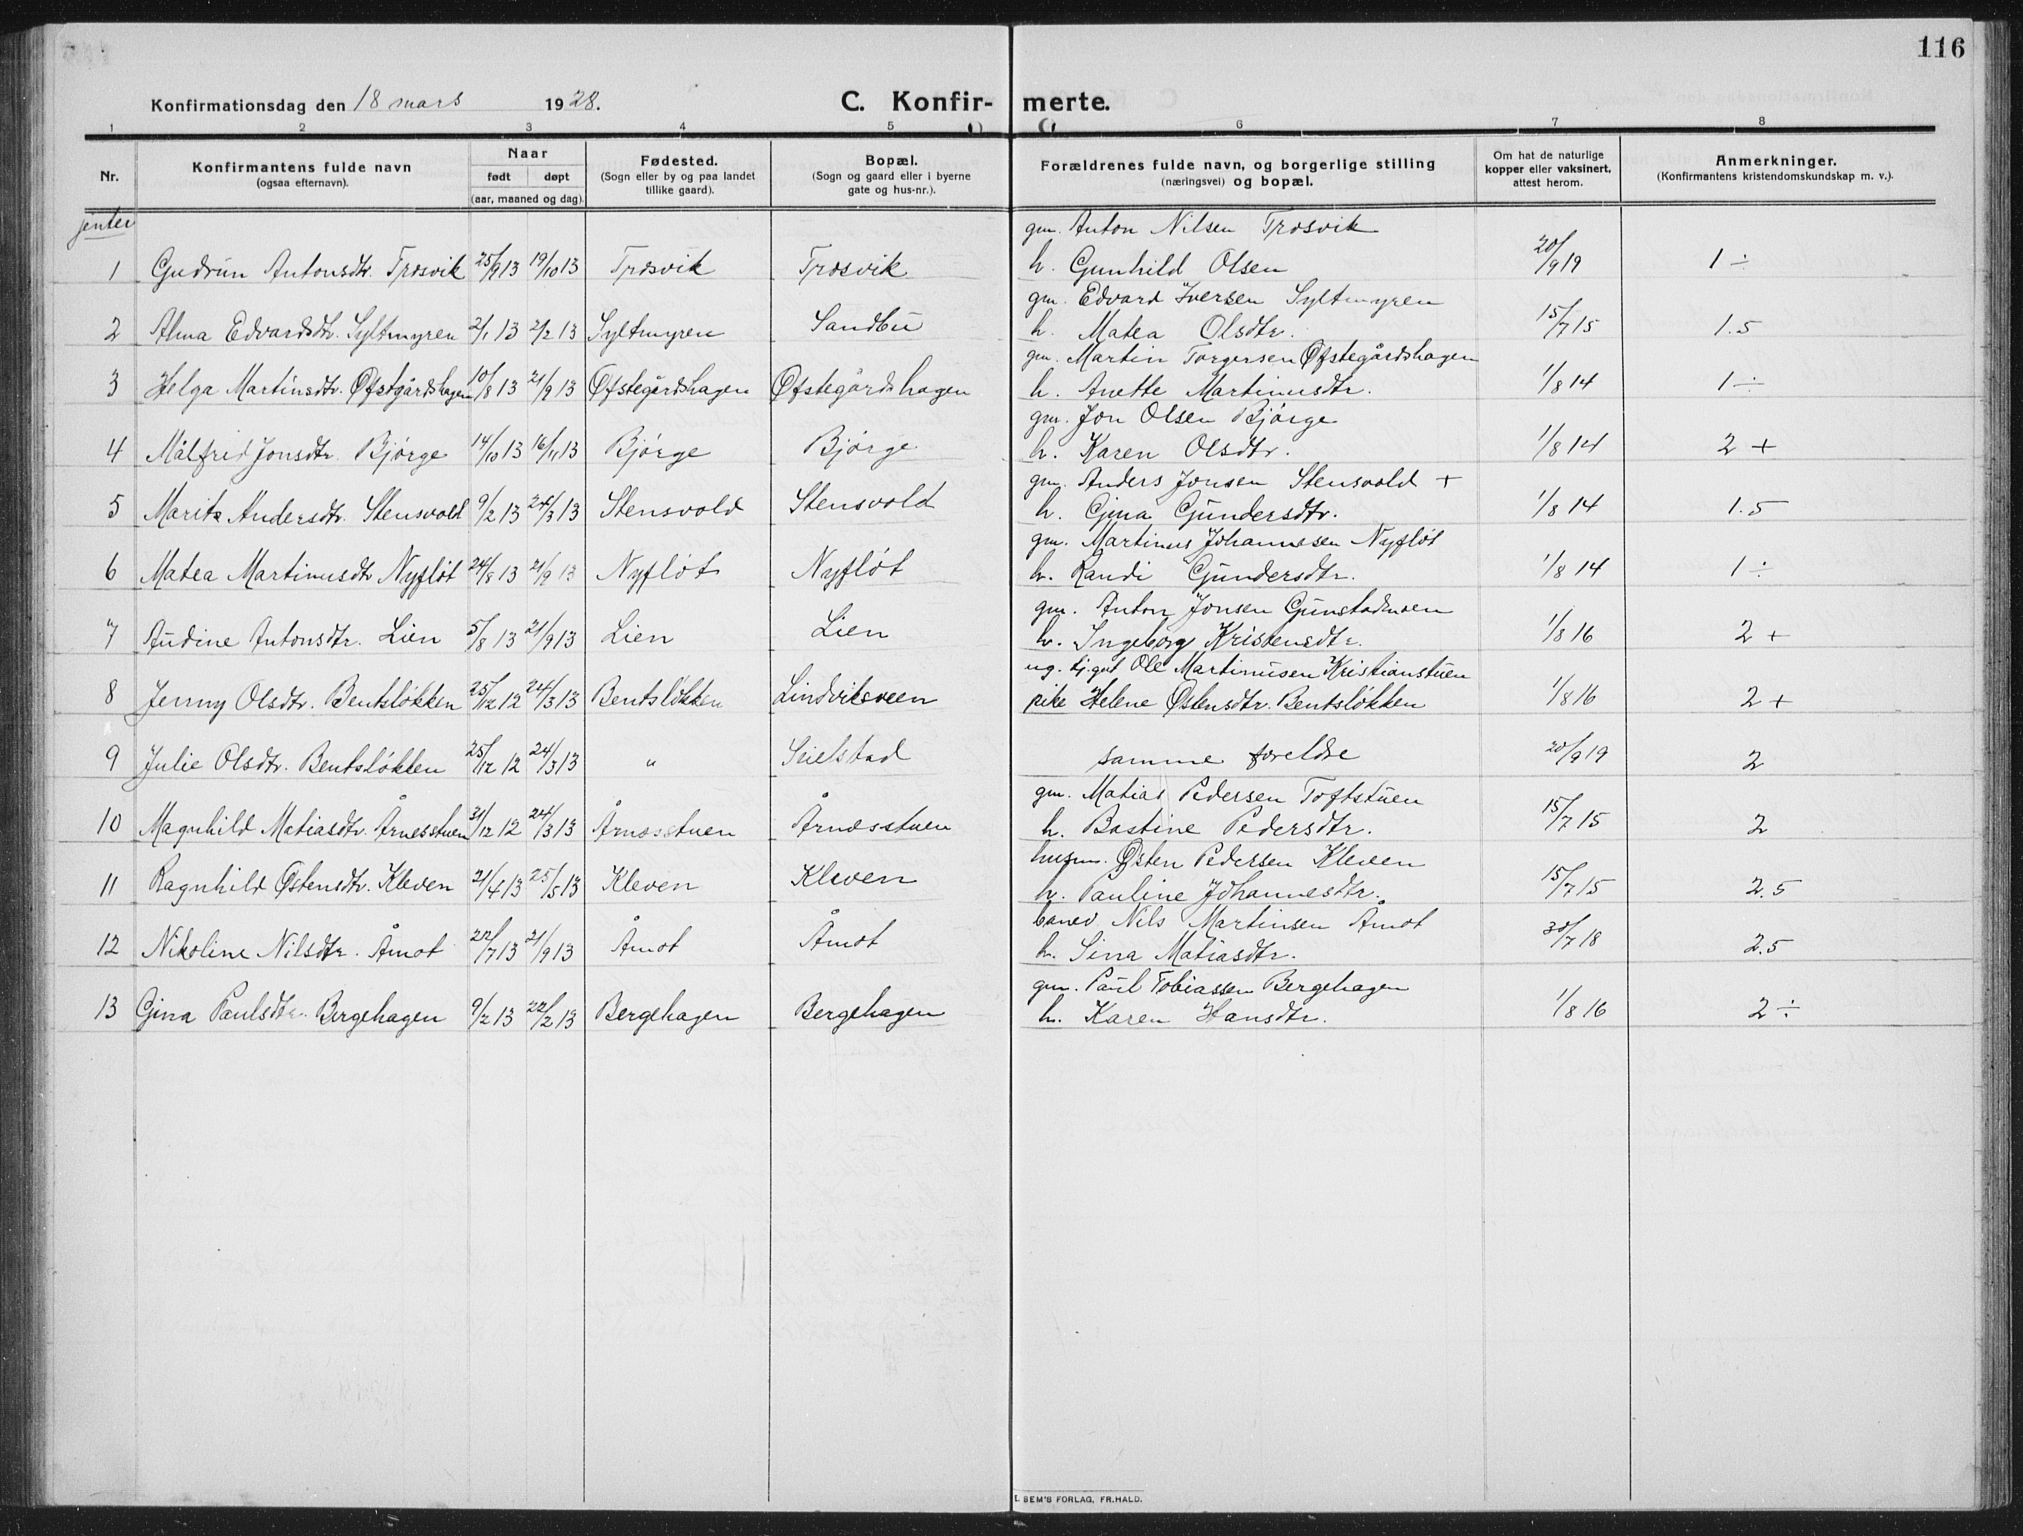 116
Konfirmationsdag den 18 mars 1928. C. Konfirmerte.
1 2 3 4 5 6 7 8
Nr. Konfirmantens fulde navn (ogsaa efternavn). Naar født døpt (aar, maaned og dag) Fødested. (Sogn eller by og paa landet tillike gaard). Bopæl. (Sogn og gaard eller i byerne gate og hus-nr.). Forældrenes fulde navn, og borgerlige stilling (næringsvei) og bopæl. Om hat de naturlige kopper eller vaksinert, attest herom. Anmerkninger. (Konfirmantens kristendomskundskap m. v.).
jenter
gm. Anton Nilsen Trosvik
1 Gudrun Antonsdtr. Trosvik 25/9 13 19/10 13 Trosvik Trosvik h. Gunhild Olsen 20/9 19 1 ÷
gm. Edvard Iversen Syltmyren
2 Alma Edvardsdtr. Syltmyren 2/1 13 2/2 13 Syltmyren Sandbu h. Matea Olsdtr. 15/7 15 1.5
gm. Martin Torgersen Øfstegårdshagen
3 Helga Martinsdtr. Øfstgårdshagen 10/8 13 21/9 13 Øfstegårdshagen Øfstegårdshagen h. Anette Martinusdtr. 1/8 14 1 ÷
gm. Jon Olsen Bjørge
4 Målfrid Jonsdtr. Bjørge 14/10 13 16/11 13 Bjørge Bjørge h. Karen Olsdtr. 1/8 14 2 +
gm. Anders Jonsen Stensvold +
5 Marit Andersdtr. Stensvold 9/2 13 24/3 13 Stensvold Stensvold h. Gina Gundersdtr. 1/8 14 1.5
gm. Martinus Johannesen Nyfløt
6 Matea Martinusdtr Nyfløt 24/8 13 21/9 13 Nyfløt Nyfløt h. Randi Gundersdtr. 1/8 14 1 ÷
gm. Anton Jonsen Gunstadmoen
7 Audine Antonsdtr. Lien 5/8 13 21/9 13 Lien Lien h. Ingeborg Kristensdtr. 1/8 16 2 +
ug. tj.gut Ole Martinusen Kristianstuen
8 Jenny Olsdtr. Bentsløkken 25/12 12 24/3 13 Bentsløkken Lindviksveen pike Helene Østensdtr. Bentsløkken 1/8 16 2 +
9 Julie Olsdtr. Bentsløkken 25/12 12 24/3 13 " Sielstad samme foreldre 20/9 19 2
gm. Matias Pedersen Toftstuen
10 Magnhild Matiasdtr. Årnesstuen 31/12 12 24/3 13 Årnesstuen Årnesstuen h. Bastine Pedersdtr. 15/7 15 2
husm. Østen Pedersen Kleven
11 Ragnhild Østensdtr. Kleven 21/4 13 25/5 13 Kleven Kleven h. Pauline Johannesdtr. 15/7 15 2.5
banev. Nils Martinsen Åmot
12 Nikoline Nilsdtr. Åmot 22/7 13 21/9 13 Åmot Åmot h. Sina Matiasdtr. 30/7 18 2.5
gm. Paul Tobiassen Bergehagen
13 Gina Paulsdtr. Bergehagen 9/2 13 22/2 13 Bergehagen Bergehagen h. Karen Hansdtr. 1/8 16 2 ÷
E. SEM'S FORLAG, FR.HALD.